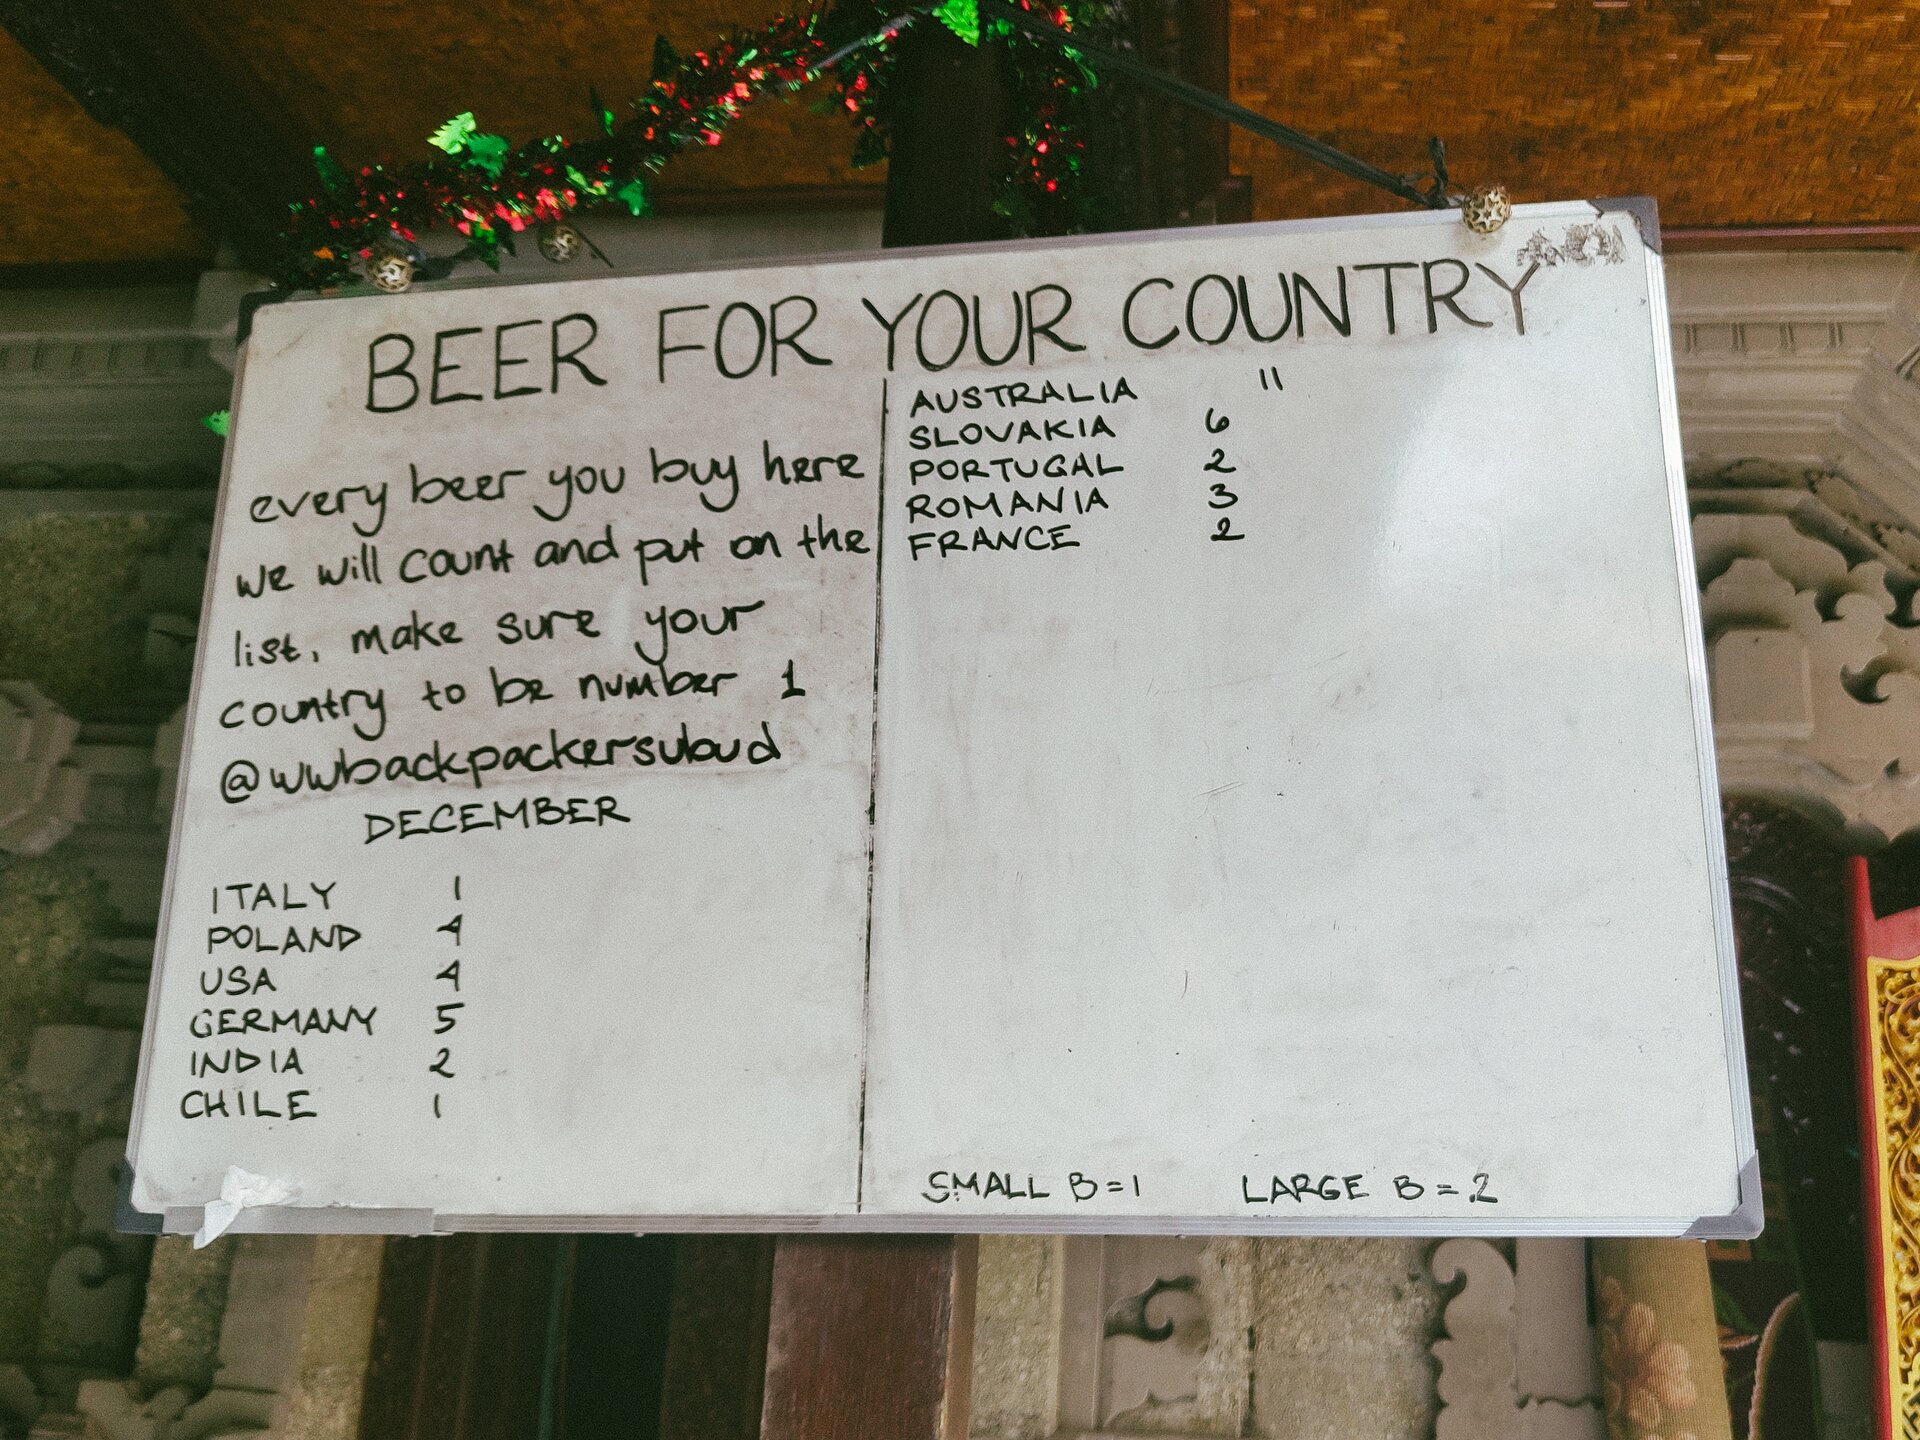 BEER FOR YOUR COUNTRY
every beer you buy here
we will count and put on the
list, make sure your
country to be number 1
@wwbackpackersubud
DECEMBER
ITALY 1
POLAND 4
USA 4
GERMANY 5
INDIA 2
CHILE 1
AUSTRALIA 11
SLOVAKIA 6
PORTUGAL 2
ROMANIA 3
FRANCE 2
SMALL B=1 LARGE B=2